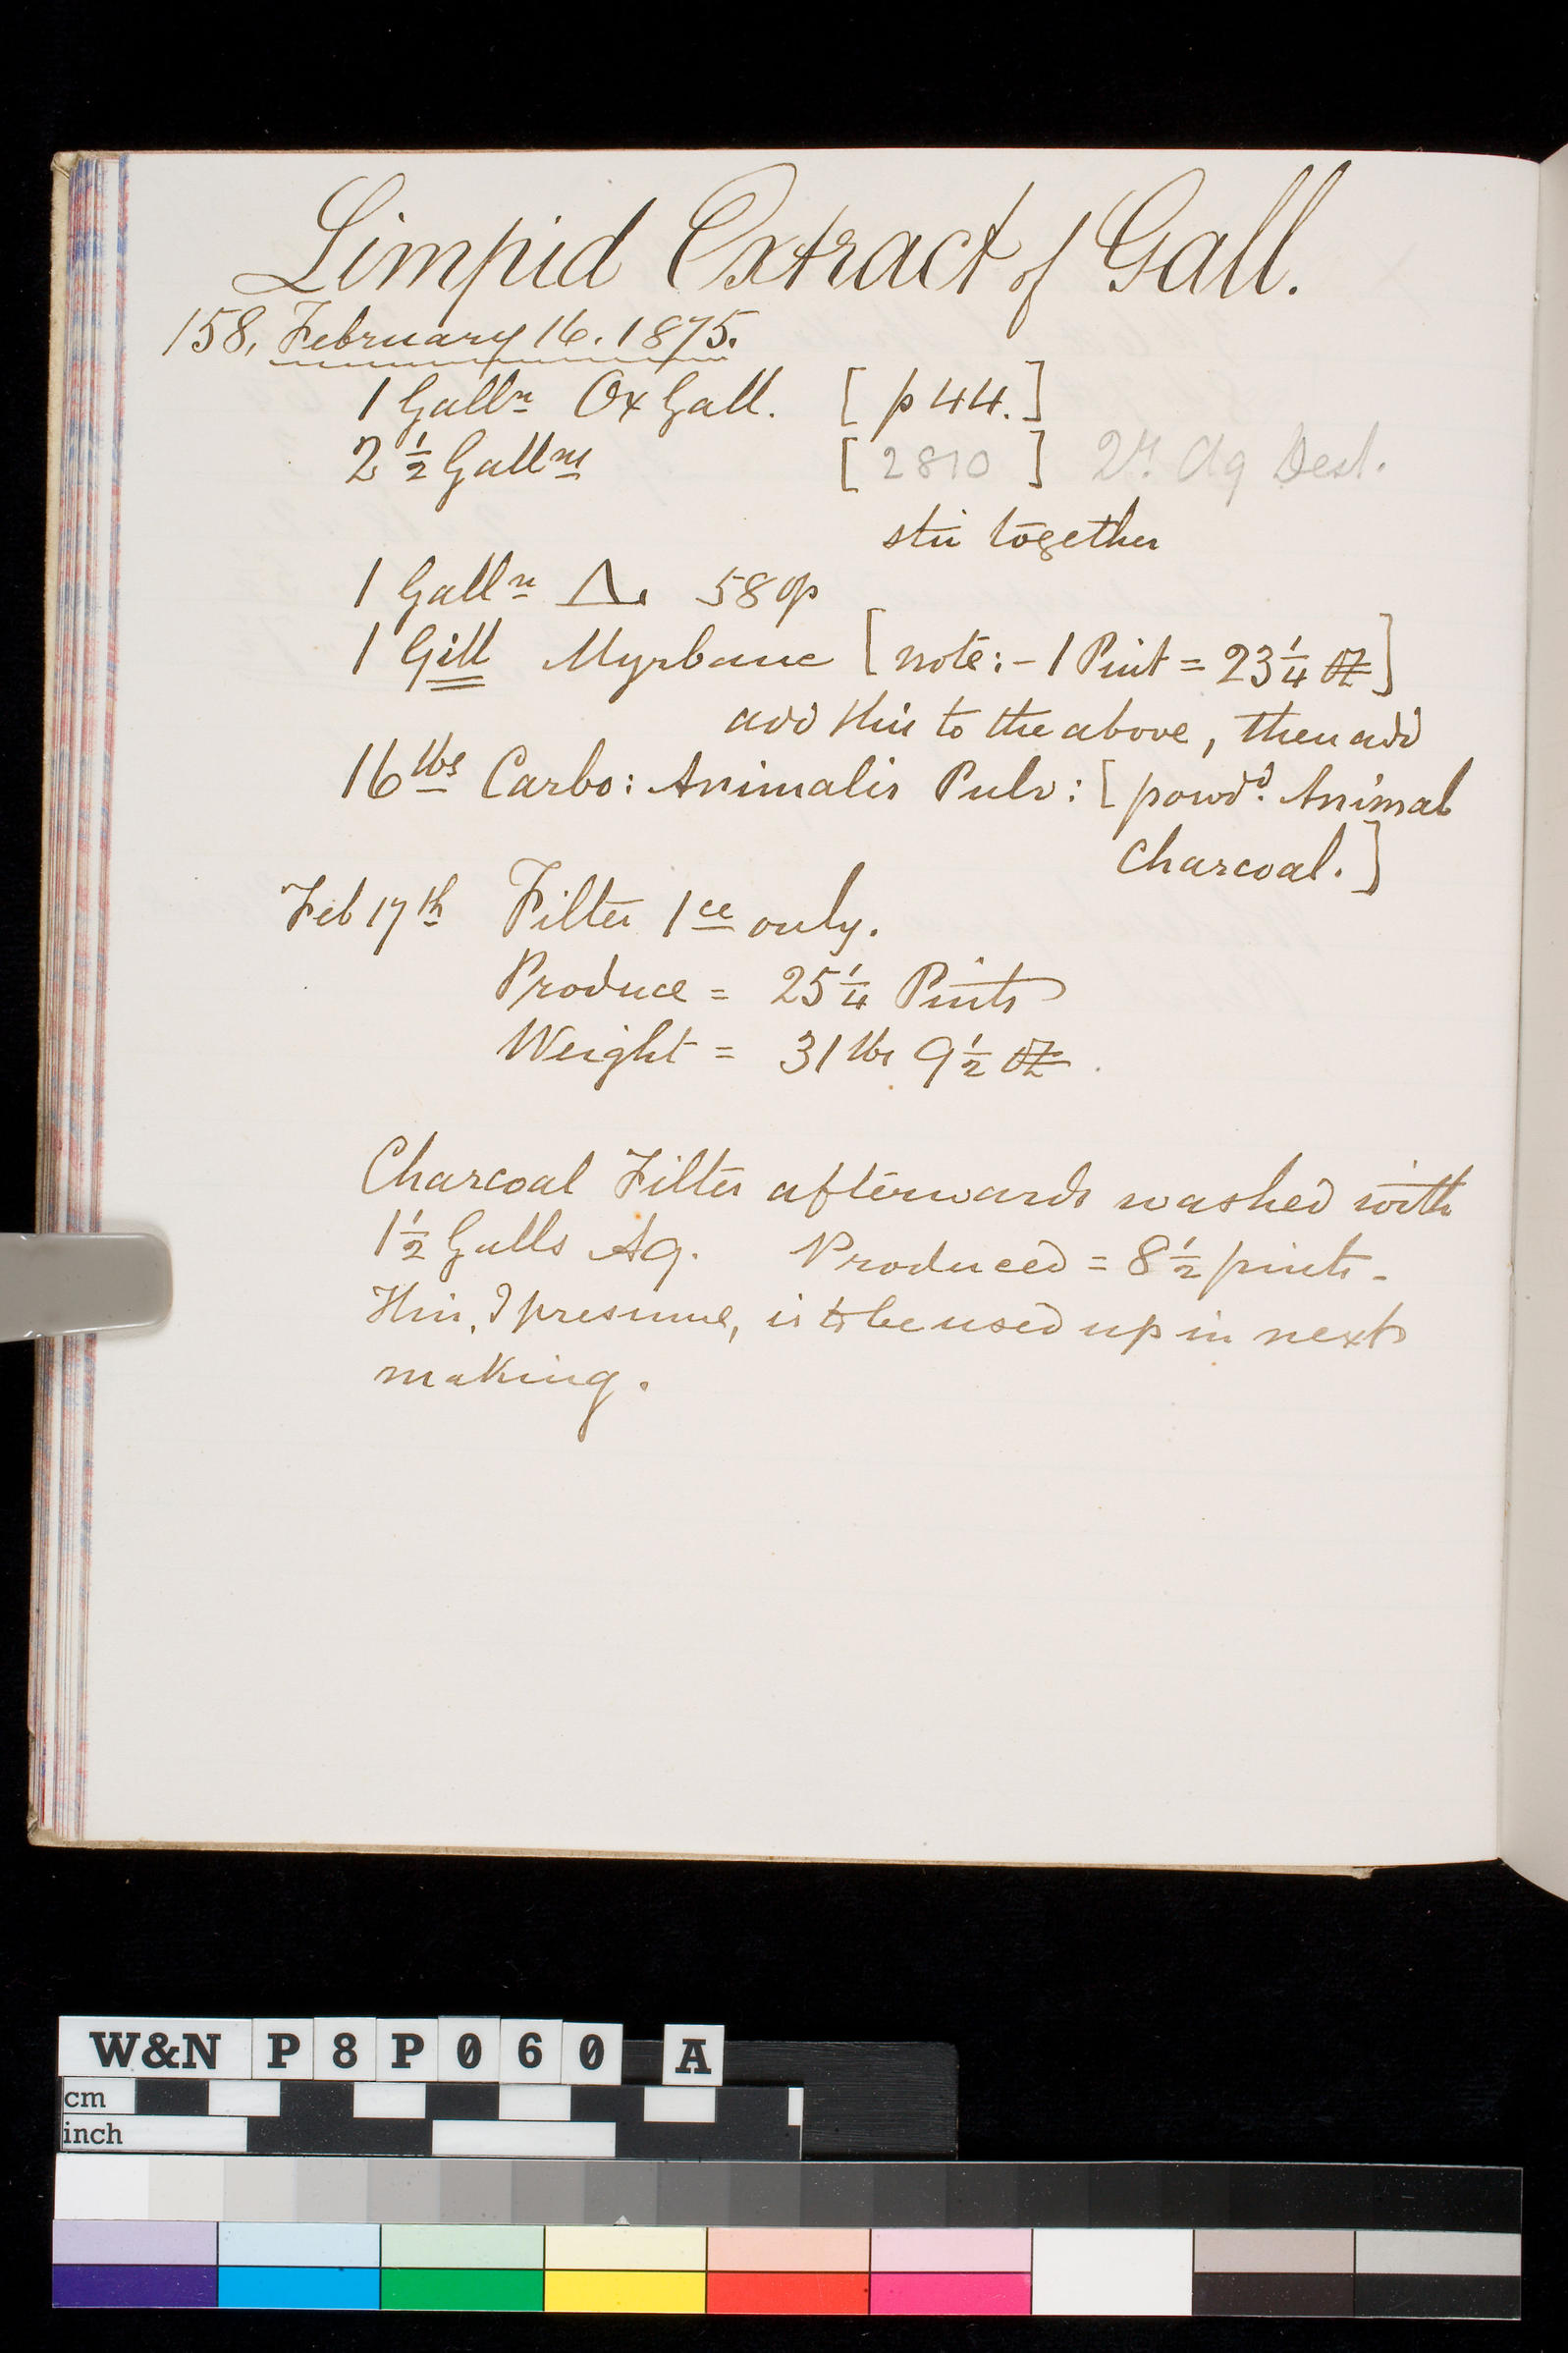 Limpid Extract of Gall.
158, February 16. 1875.
1 Galln Ox Gall. [ p 44. ]
2 1/2 Gallns [ 2810 ] Aq Dest.
stir together
1 Galln 58 op
1 Gill Myrbane [ note:- 1 Pint = 23 1/4 oz ]
add this to the above, then add
16 lbs Carbo: Animalis Pulv: [ powdd. Animal
Charcoal. ]
Feb 17th Filter 1ce only.
Produce = 25 1/4 Pints
Weight = 31 lbs 9 1/2 oz.
Charcoal Filter afterwards washed with
1 1/2 Galls Aq. Produced = 8 1/2 pints -
This, I presume, is to be used up in next
making.
W&N P8P060 A
cm
inch